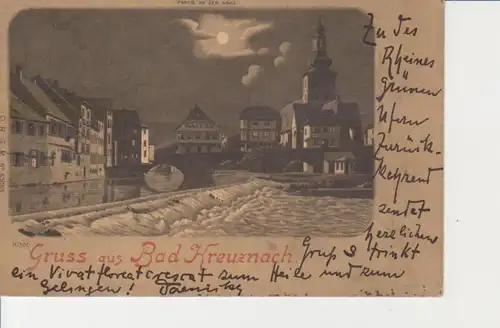 Zu des
Rheines
Grünen
Ufern
Zurück-
kehrend
sendet
herzlichen
Gruss aus Bad Kreuznach.
Gruß & trinkt
ein Vivat floreat crescat zum Heile und zum
Gelingen!